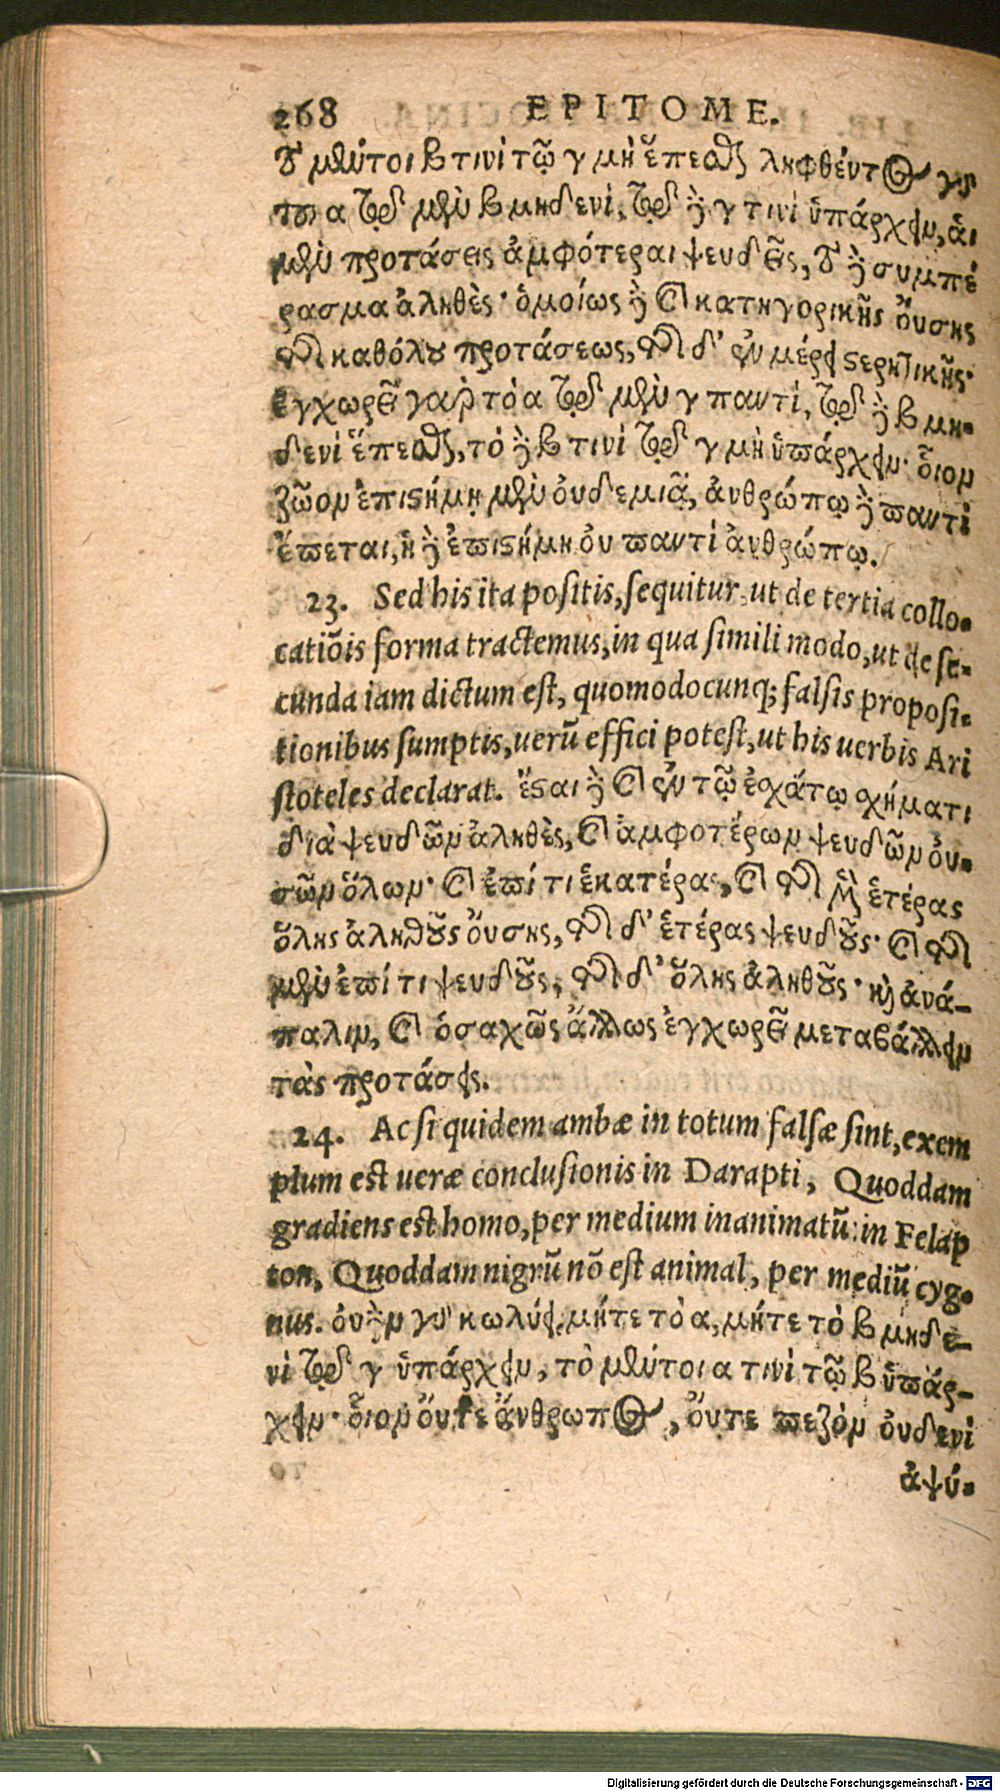 268 EPITOME.
τὸ μέντοι β τινὶ τῷ γ μὴ ἕπεσθαι ληφθέντος γδ
τὸ α τῷ μὲν β μηδενὶ, τῷ δὲ γ τινὶ ὑπάρχειν, ἁι
μὲν προτάσεις ἀμφότεραι ψευδεῖς, τὸ δὲ συμπέ
ρασμα ἀληθὲς· ὁμοίως δὲ καὶ κατηγορικῆς οὔσης
τῆς καθόλου προτάσεως, τῆς δ' ἐν μέρει στερητικῆς·
ἐγχωρεῖ γαρ τὸ α τῷ μὲν γ παντὶ, τῷ δὲ β μη-
δενὶ ἕπεσθαι, τὸ δὲ β τινὶ τῷ γ μὴ ὑπάρχειν· οἷον
ζῶον ἐπιστήμῃ μὲν οὐδεμιᾷ, ἀνθρώπῳ δὲ παντὶ
ἕπεται, ἡ δὲ ἐπιστήμη οὐ παντὶ ἀνθρώπῳ.
23. Sed his ita positis, sequitur ut de tertia collo-
catiõis forma tractemus, in qua simili modo, ut de se-
cunda iam dictum est, quomodocunq; falsis proposi-
tionibus sumptis, uerũ effici potest, ut his uerbis Ari
stoteles declarat. ἔσται δὲ καὶ ἐν τῷ ἐσχάτῳ σχήματι
διὰ ψευδῶν ἀληθὲς, καὶ ἀμφοτέρων ψευδῶν οὐ-
σῶν ὅλων· καὶ ἐπί τι ἑκατέρας, καὶ τῆς μὲν ἑτέρας
ὅλης ἀληθοῦς οὔσης, τῆς δ' ἑτέρας ψευδοῦς· καὶ τῆς
μὲν ἐπί τι ψευδοῦς, τῆς δ' ὅλης ἀληθοῦς· καὶ ἀνά-
παλιν, καὶ ὁσαχῶς ἄλλως ἐγχωρεῖ μεταβάλλειν
τὰς προτάσεις.
24. Ac si quidem ambæ in totum falsæ sint, exem
plum est ueræ conclusionis in Darapti, Quoddam
gradiens est homo, per medium inanimatũ: in Felap
ton, Quoddam nigrũ nõ est animal, per mediũ cyg-
nus. οὐδὲν γὰρ κωλύει, μήτε τὸ α, μήτε τὸ β μηδε-
νὶ τῷ γ ὑπάρχειν, τὸ μέντοι α τινὶ τῷ β ὑπάρ-
χειν· οἷον οὔτε ἄνθρωπος, οὔτε πεζὸν οὐδενὶ
ἀψύ-
Digitalisierung gefördert durch die Deutsche Forschungsgemeinschaft - DFG